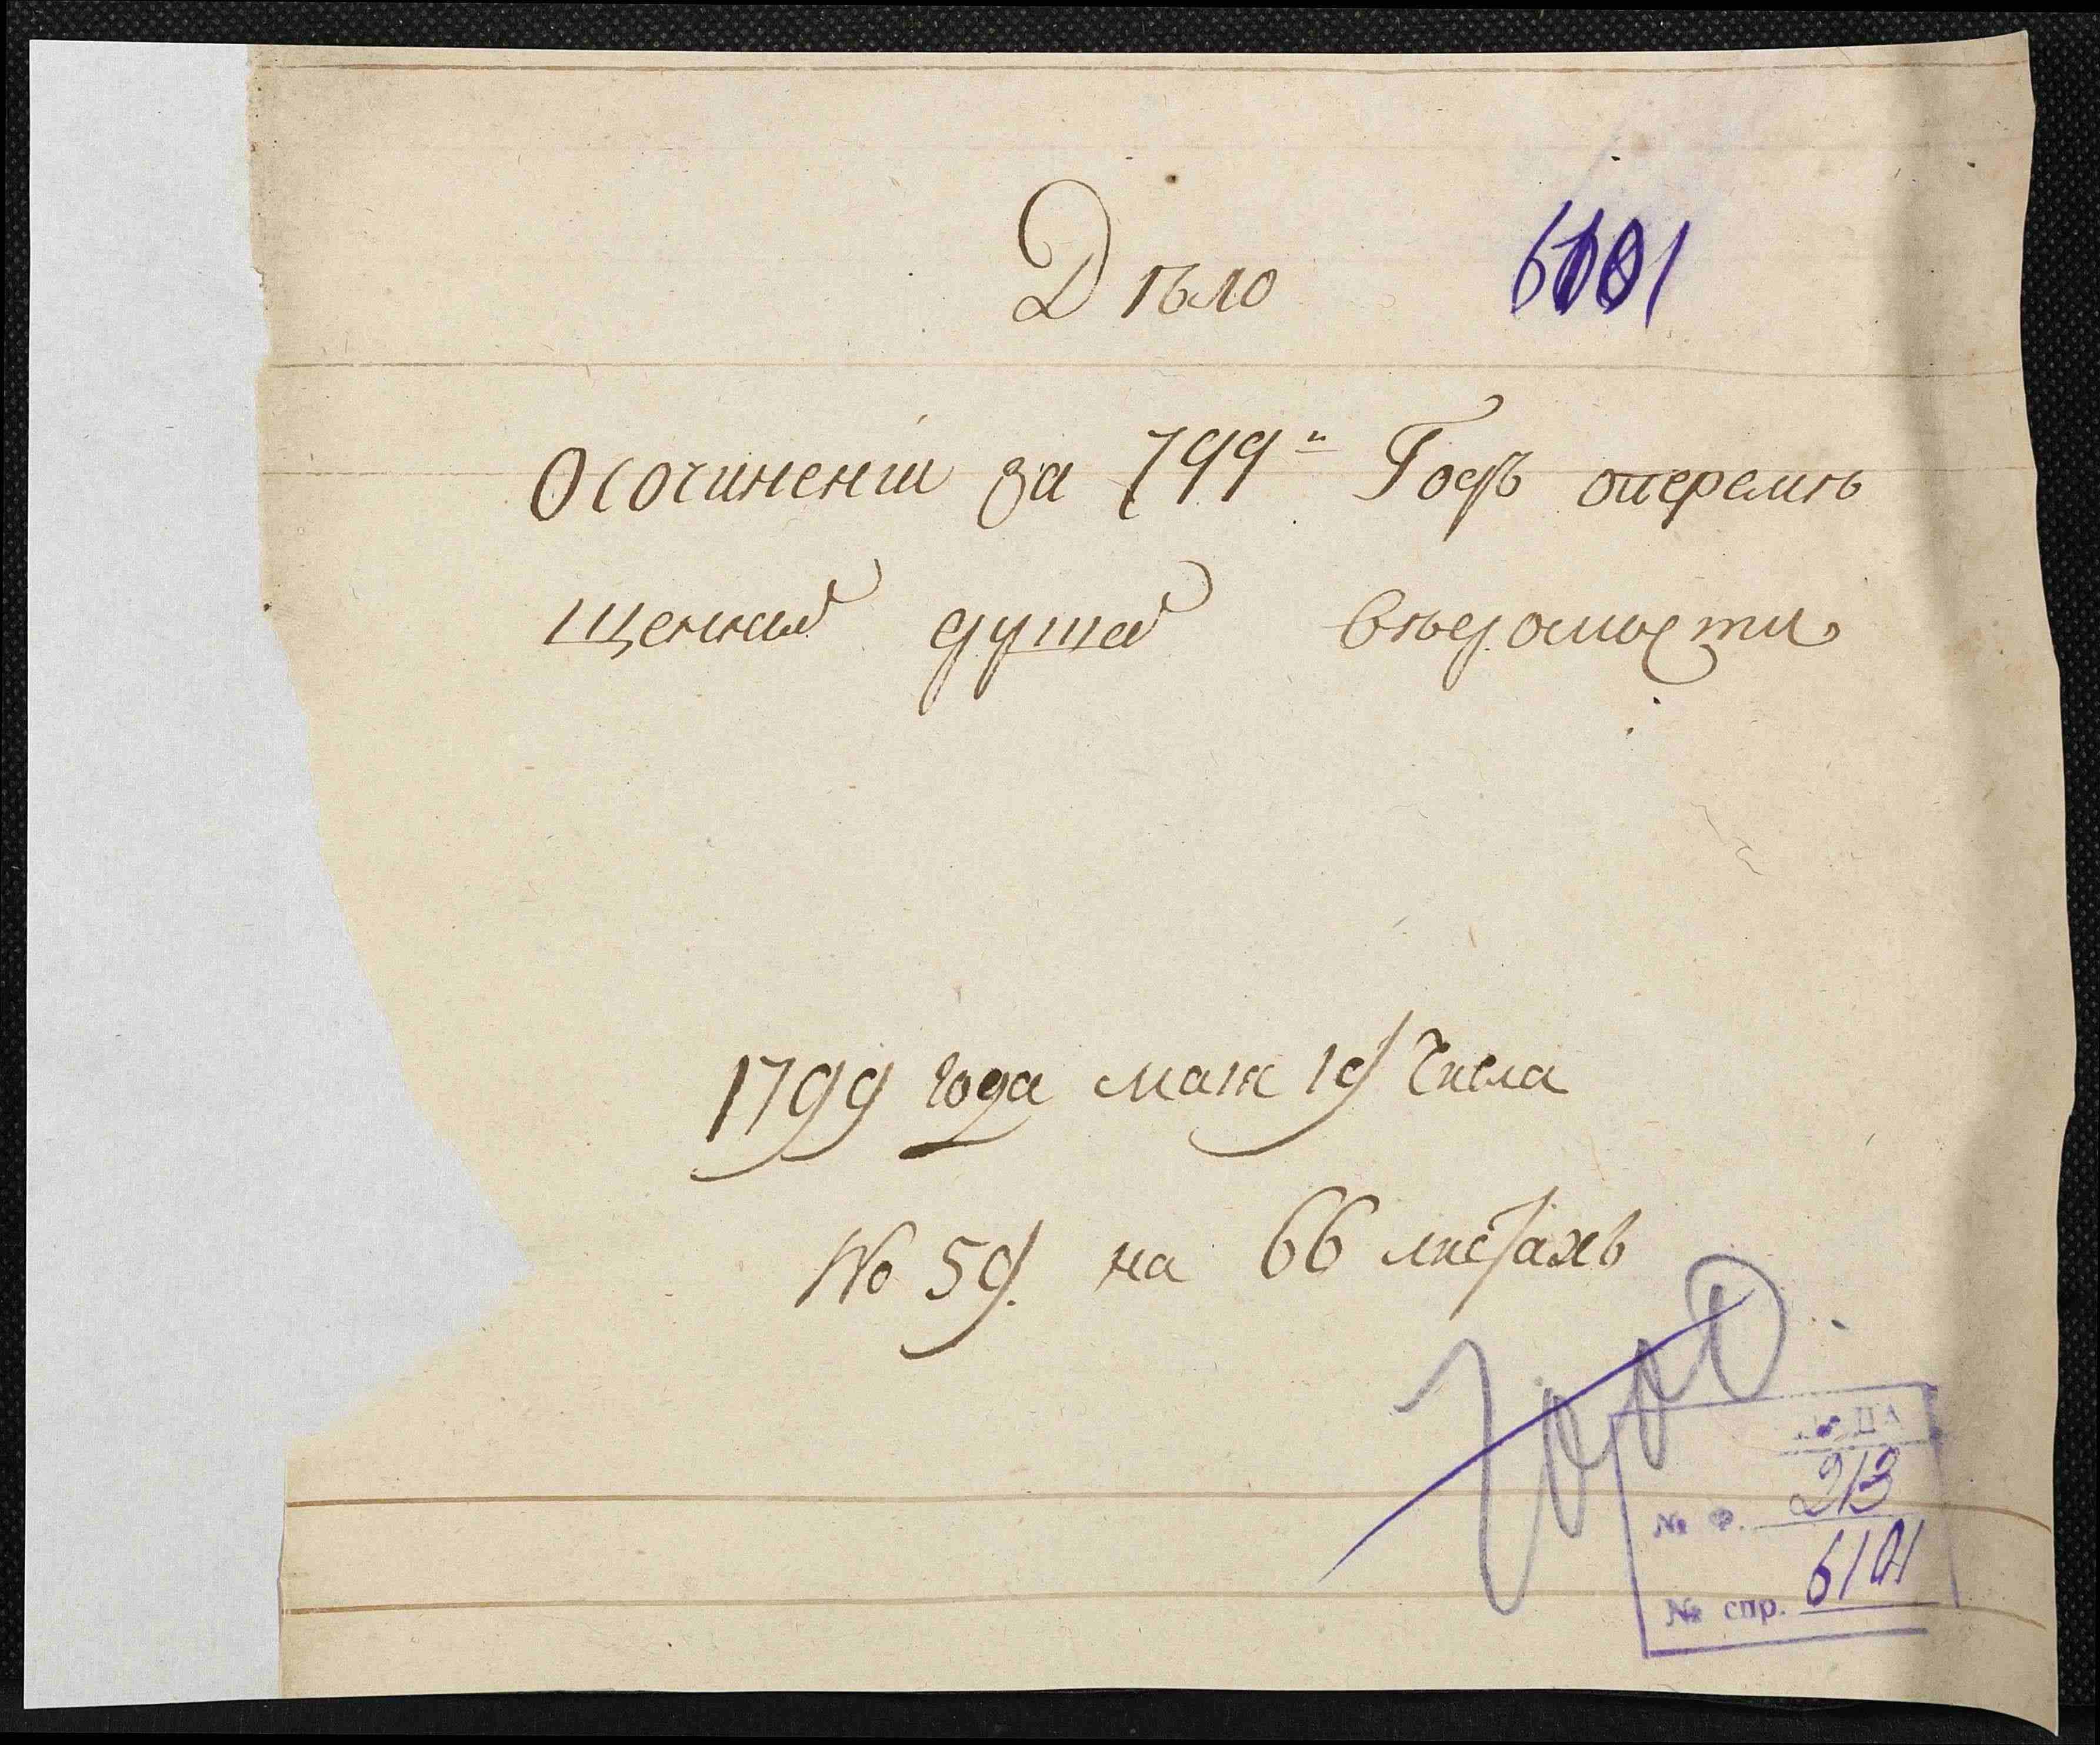 Дѣло 6101
О сочиненіи за 799й Годъ о перемѣ
щеніи душъ вѣдомости
1799 года мая 19 Числа
№ 59. на 66 листахъ
№ Ф. 213
№ спр. 6101